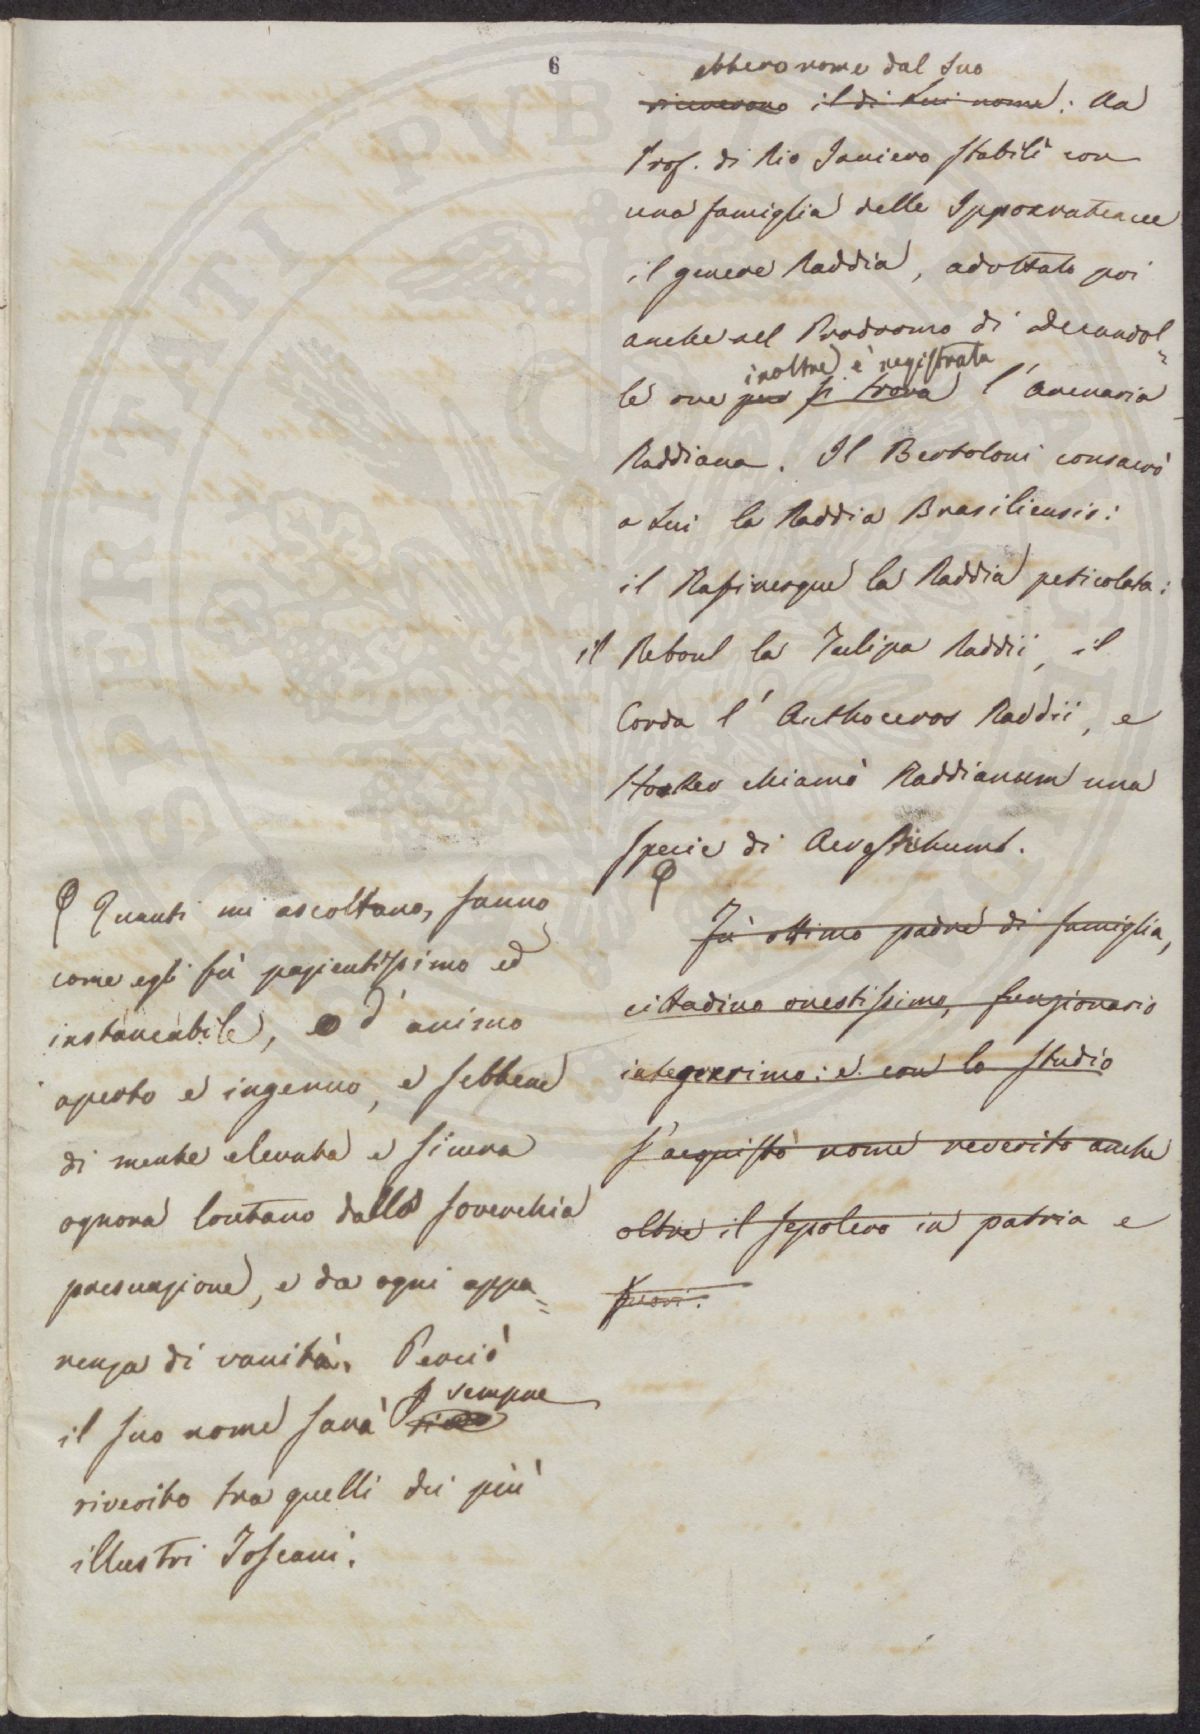 6
ebbero nome dal suo
riceverono il di lui nome: Un
Prof. di Rio Janiero stabilì con
una famiglia delle Ippocrateacee
il genere Raddia, adottato poi
anche nel Prodromo di Decandol=
inoltre è registrata
le ove pur si trova l'Arenaria
Raddiana. Il Bertoloni consacrò
a lui la Raddia Brasiliensis:
il Rafinesque la Raddia peticolata:
il Reboul la Tulipa Raddii, il
Corda l'Anthoceros Raddii, e
Hooker chiamò Raddianum una
specie di Acrostichum.
Fù ottimo padre di famiglia,
cittadino onestissimo, funzionario
integerrimo: e con lo studio
s'acquistò nome reverito anche
oltre il sepolcro in patria e
fuori.
Quanti mi ascoltano, sanno
come egli fù pazientissimo ed
instancabile, d'animo
aperto e ingenuo, e sebbene
di mente elevata e sicura
ognora lontano dalla soverchia
presunzione, e da ogni appa=
renza di vanità. Perciò
sempre
il suo nome sarà
riverito tra quelli dei più
illustri Toscani.